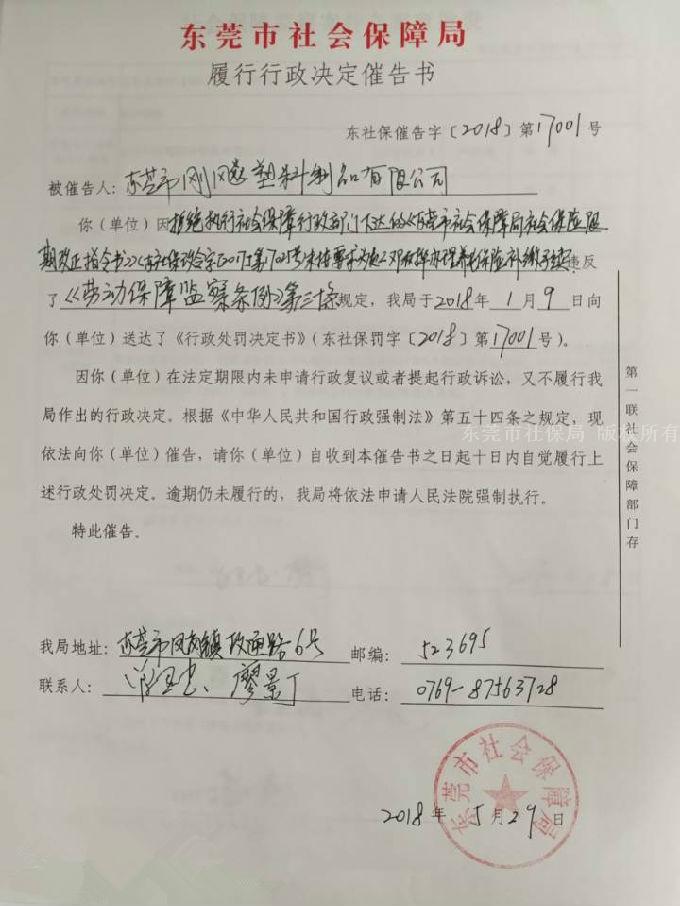 东莞市社会保障局
履行行政决定催告书
东社保催告字〔2018〕第17001号
被催告人：东莞市刚 塑料制品有限公司
你（单位）因拒绝执行社会保障行政部门下达的《东莞市社会保障局社会保险限
期改正指令书》（东社保改令字[2017]第 号）未按要求为 办理养老保险补缴手续违反
了《劳动保障监察条例》第三十条规定，我局于2018年1月9日向
你（单位）送达了《行政处罚决定书》（东社保罚字〔2018〕第17001号）。
因你（单位）在法定期限内未申请行政复议或者提起行政诉讼，又不履行我
局作出的行政决定。根据《中华人民共和国行政强制法》第五十四条之规定，现
依法向你（单位）催告，请你（单位）自收到本催告书之日起十日内自觉履行上
述行政处罚决定。逾期仍未履行的，我局将依法申请人民法院强制执行。
特此催告。
我局地址：东莞市凤岗镇政通路6号 邮编：523695
联系人： 、廖景 电话：0769-87563728
东莞市社会保障局
2018年5月29日
第一联社会保障部门存
东莞市社保局 版权所有